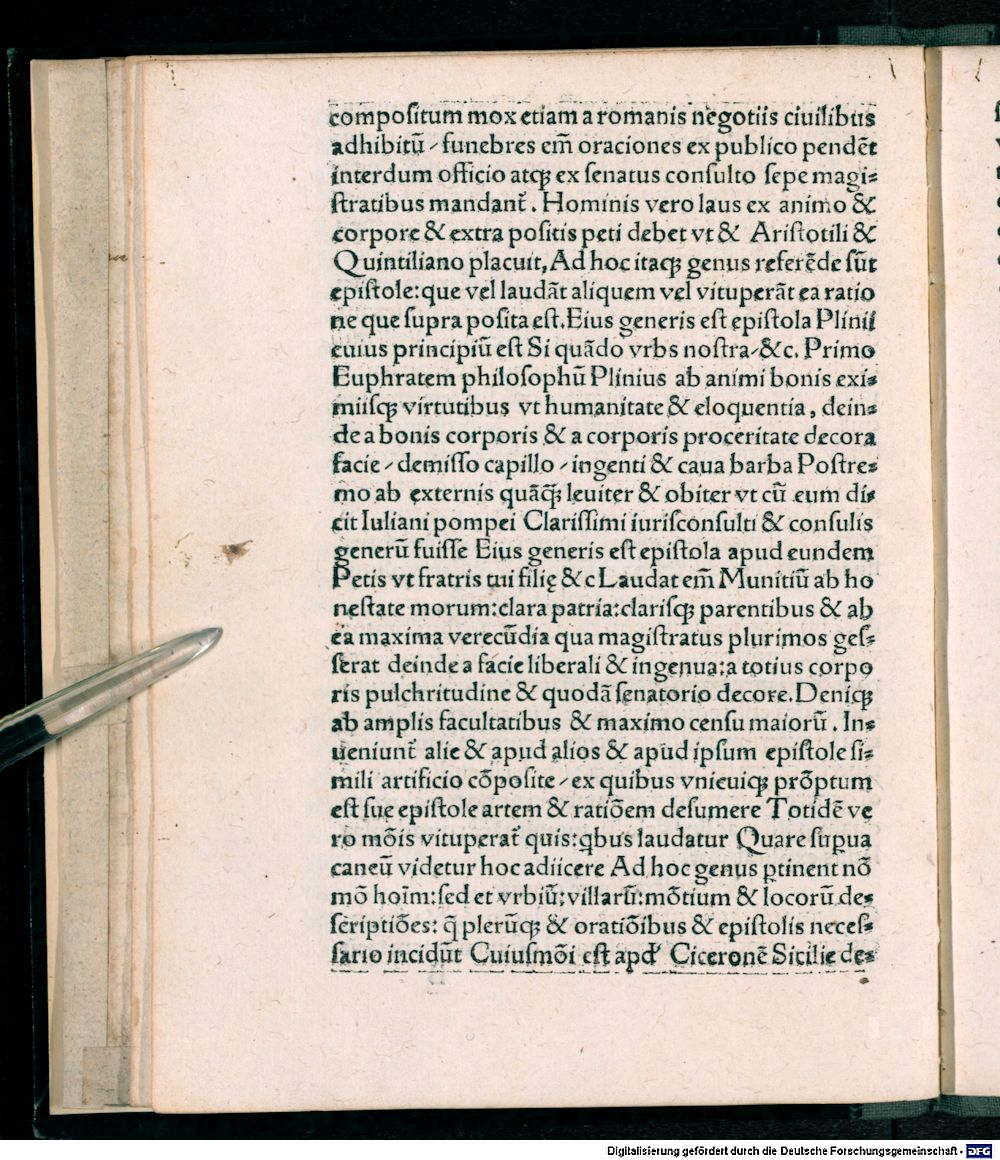 compoſitum mox etiam a romanis negotiis ciuilibus
adhibitū ⸝ funebres em̄ oraciones ex publico pendēt
interdum officio atqꝫ ex ſenatus conſulto ſepe magi⸗
ſtratibus mandant̄ . Hominis vero laus ex animo &
corpore & extra poſitis peti debet vt & Ariſtotili &
Quintiliano placuit, Ad hoc itaqꝫ genus referēde ſūt
epiſtole: que vel laudāt aliquem vel vituperāt ea ratio
ne que ſupra poſita eſt. Eius generis eſt epiſtola Plinii
cuius principiū eſt Si quādo vrbs noſtra⸝ &c. Primo
Euphratem philoſophū Plinius ab animi bonis exi⸗
miiſqꝫ virtutibus vt humanitate & eloquentia, dein⸗
de a bonis corporis & a corporis proceritate decora
facie ⸝ demiſſo capillo ⸝ ingenti & caua barba Poſtre⸗
mo ab externis quāq̄ꝫ leuiter & obiter vt cū eum di⸗
cit Iuliani pompei Clariſſimi iuriſconſulti & conſulis
generū fuiſſe Eius generis eſt epiſtola apud eundem
Petis vt fratris tui filię &c Laudat em̄ Munitiū ab ho
neſtate morum: clara patria: clariſqꝫ parentibus & ab
ea maxima verecūdia qua magiſtratus plurimos geſ⸗
ſerat deinde a facie liberali & ingenua: a totius corpo
ris pulchritudine & quodā ſenatorio decore. Deniqꝫ
ab amplis facultatibus & maximo cenſu maiorū . In⸗
ueniunt̄ alie & apud alios & apud ipſum epiſtole ſi⸗
mili artificio cōpoſite ⸝ ex quibus vnicuiqꝫ prōptum
eſt ſue epiſtole artem & ratiōem deſumere Totidē ve
ro mōis vituperat̄ quis: qbus laudatur Quare ſupua
caneū videtur hoc adiicere Ad hoc genus ꝑtinent nō
mō hoīm: ſed et vrbiū: villarū: mōtium & locorū de⸗
ſcriptiōes: q̄ plerūqꝫ & oratiōibus & epiſtolis neceſ⸗
ſario incidūt Cuiuſmōi eſt apđ Ciceronē Sicilie de⸗
Digitalisierung gefördert durch die Deutsche Forschungsgemeinschaft - DFG